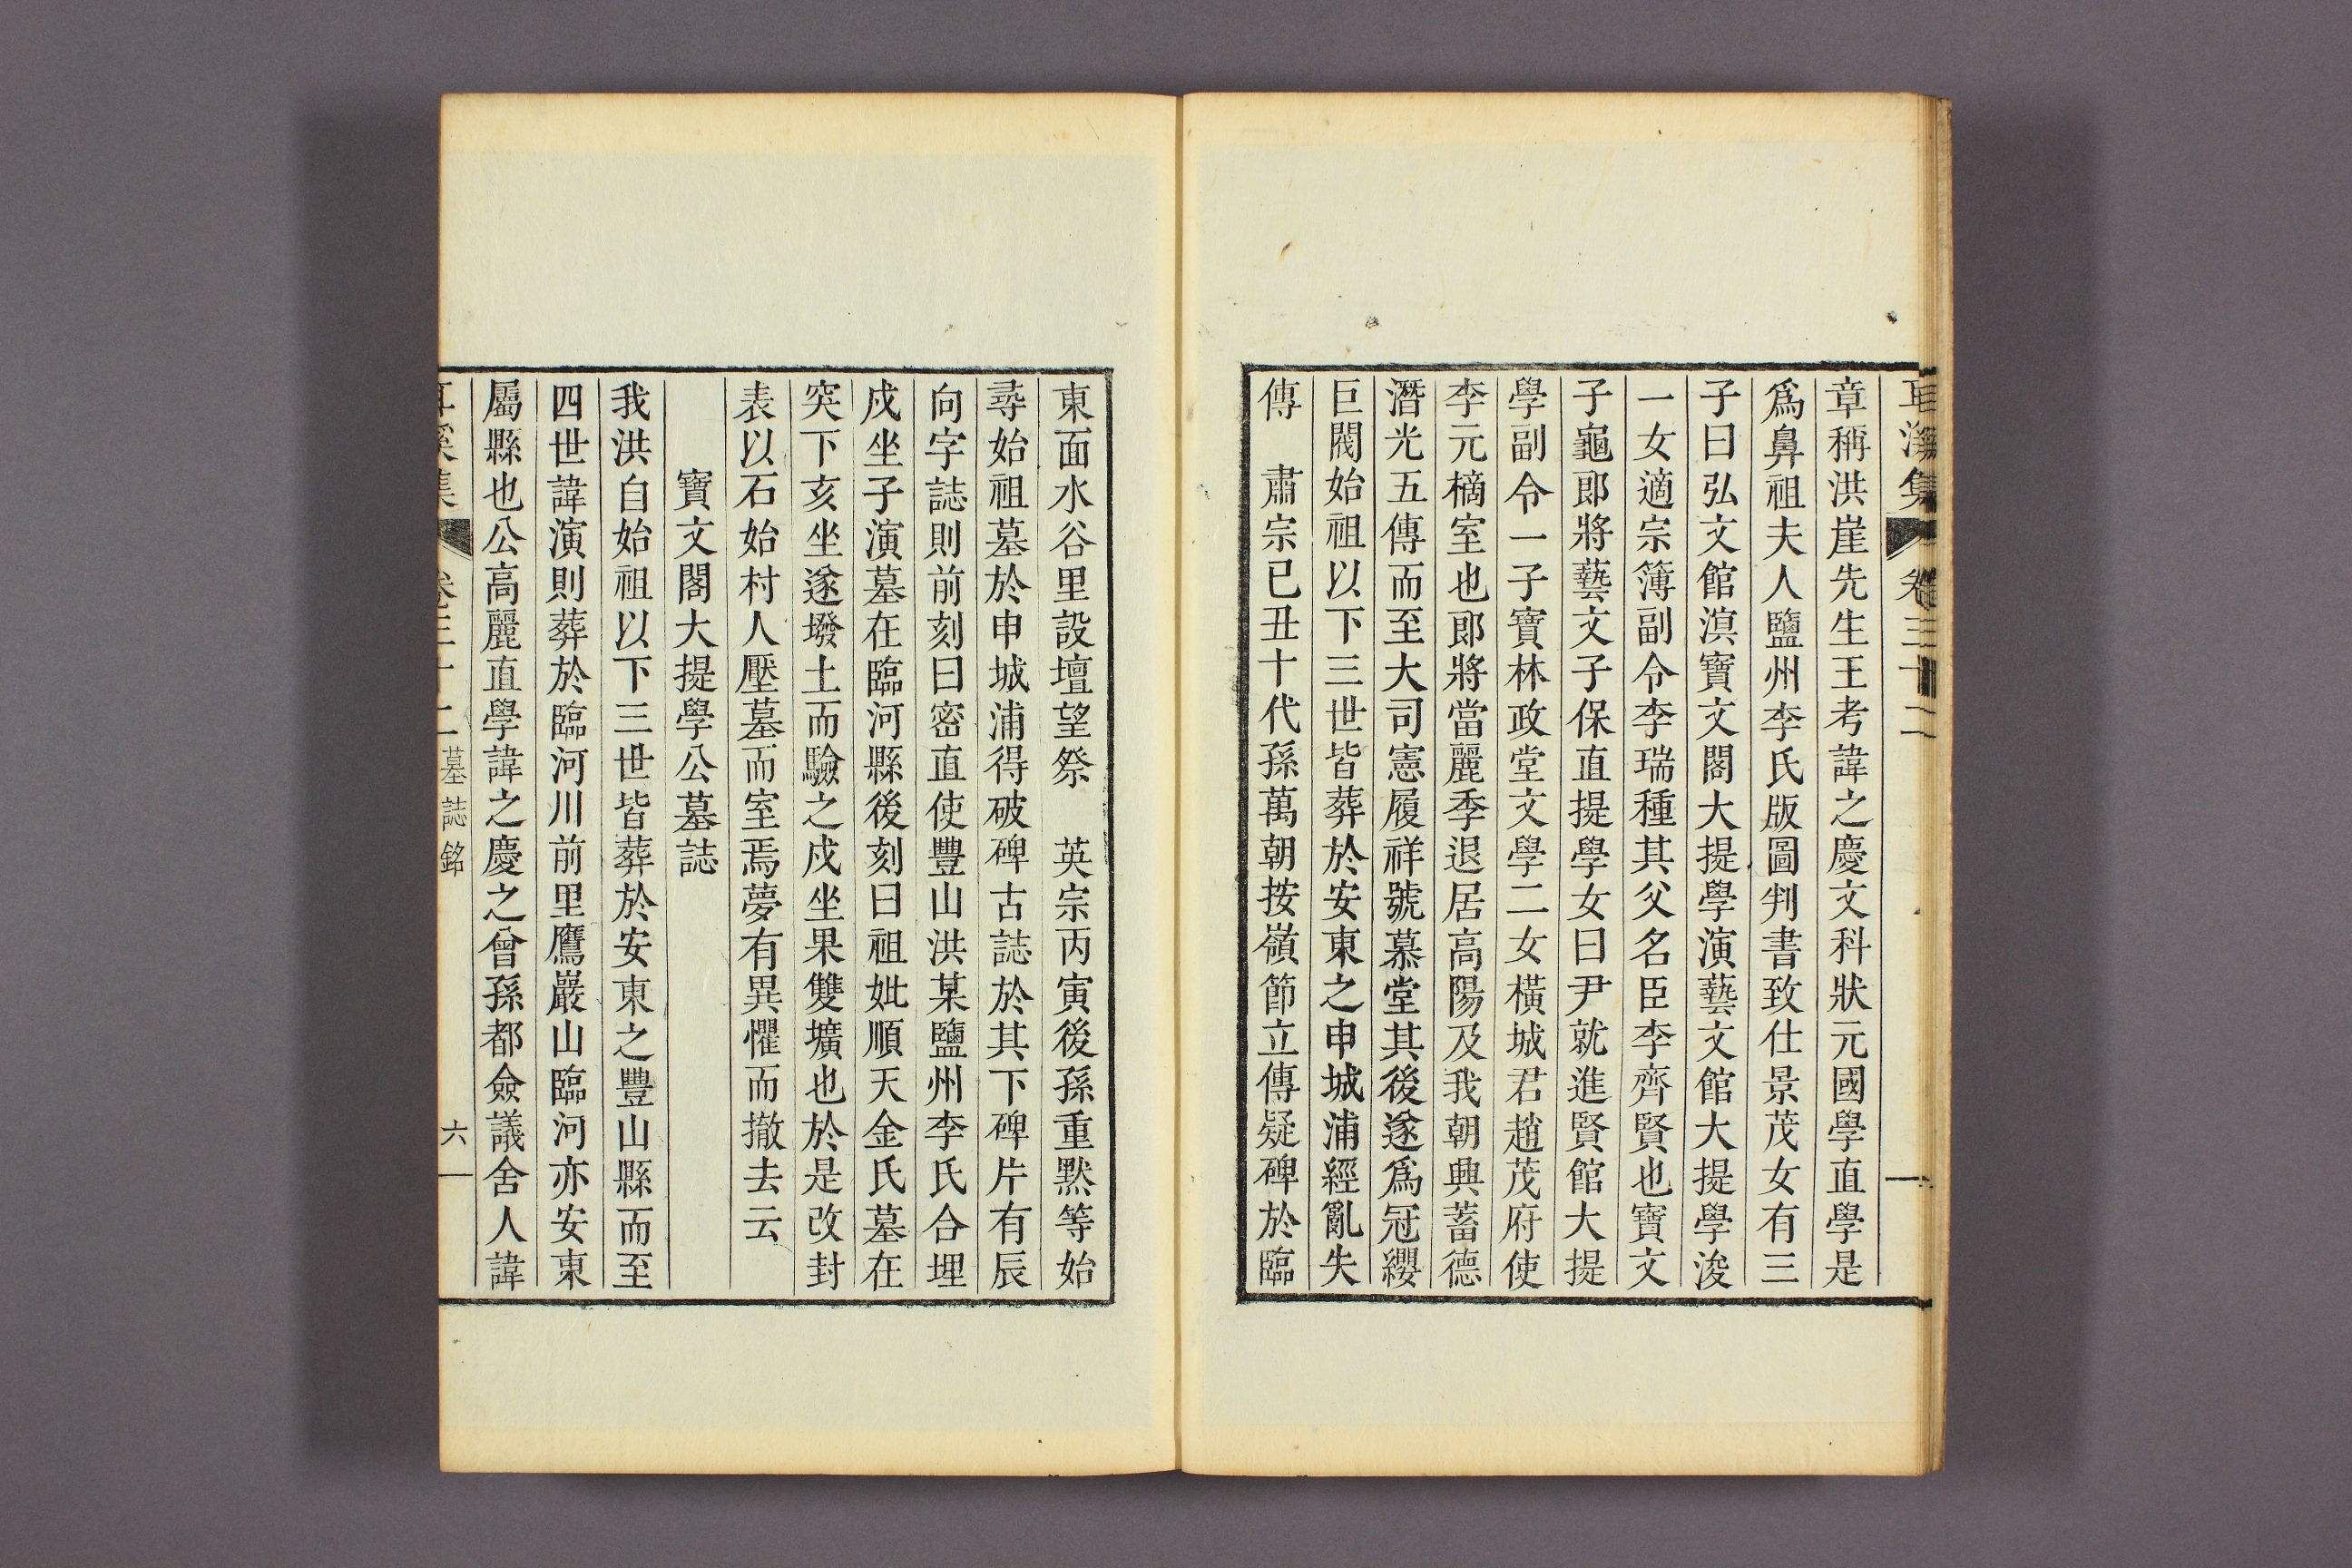 耳溪集 卷三十二
章稱洪崖先生王考諱之慶文科狀元國學直學是
爲鼻祖夫人鹽州李氏版圖判書致仕景茂女有三
子曰弘文館滉寶文閣大提學演藝文館大提學浚
一女適宗簿副令李瑞種其父名臣李齊賢也寶文
子龜郎將藝文子保直提學女曰尹就進賢館大提
學副令一子寶林政堂文學二女橫城君趙茂府使
李元樀室也郎將當麗季退居高陽及我朝興蓄德
潛光五傳而至大司憲履祥號慕堂其後遂爲冠纓
巨閥始祖以下三世皆葬於安東之申城浦經亂失
傳　肅宗已丑十代孫萬朝按嶺節立傳疑碑於臨
東面水谷里設壇望祭　英宗丙寅後孫重默等始
尋始祖墓於申城浦得破碑古誌於其下碑片有辰
向字誌則前刻曰密直使豐山洪某鹽州李氏合埋
戌坐子演墓在臨河縣後刻曰祖妣順天金氏墓在
突下亥坐遂墢土而驗之戌坐果雙壙也於是改封
表以石始村人壓墓而室焉夢有異懼而撤去云
寶文閣大提學公墓誌
我洪自始祖以下三世皆葬於安東之豐山縣而至
四世諱演則葬於臨河川前里鷹巖山臨河亦安東
屬縣也公高麗直學諱之慶之曾孫都僉議舍人諱
耳溪集 卷三十二 墓誌銘 六